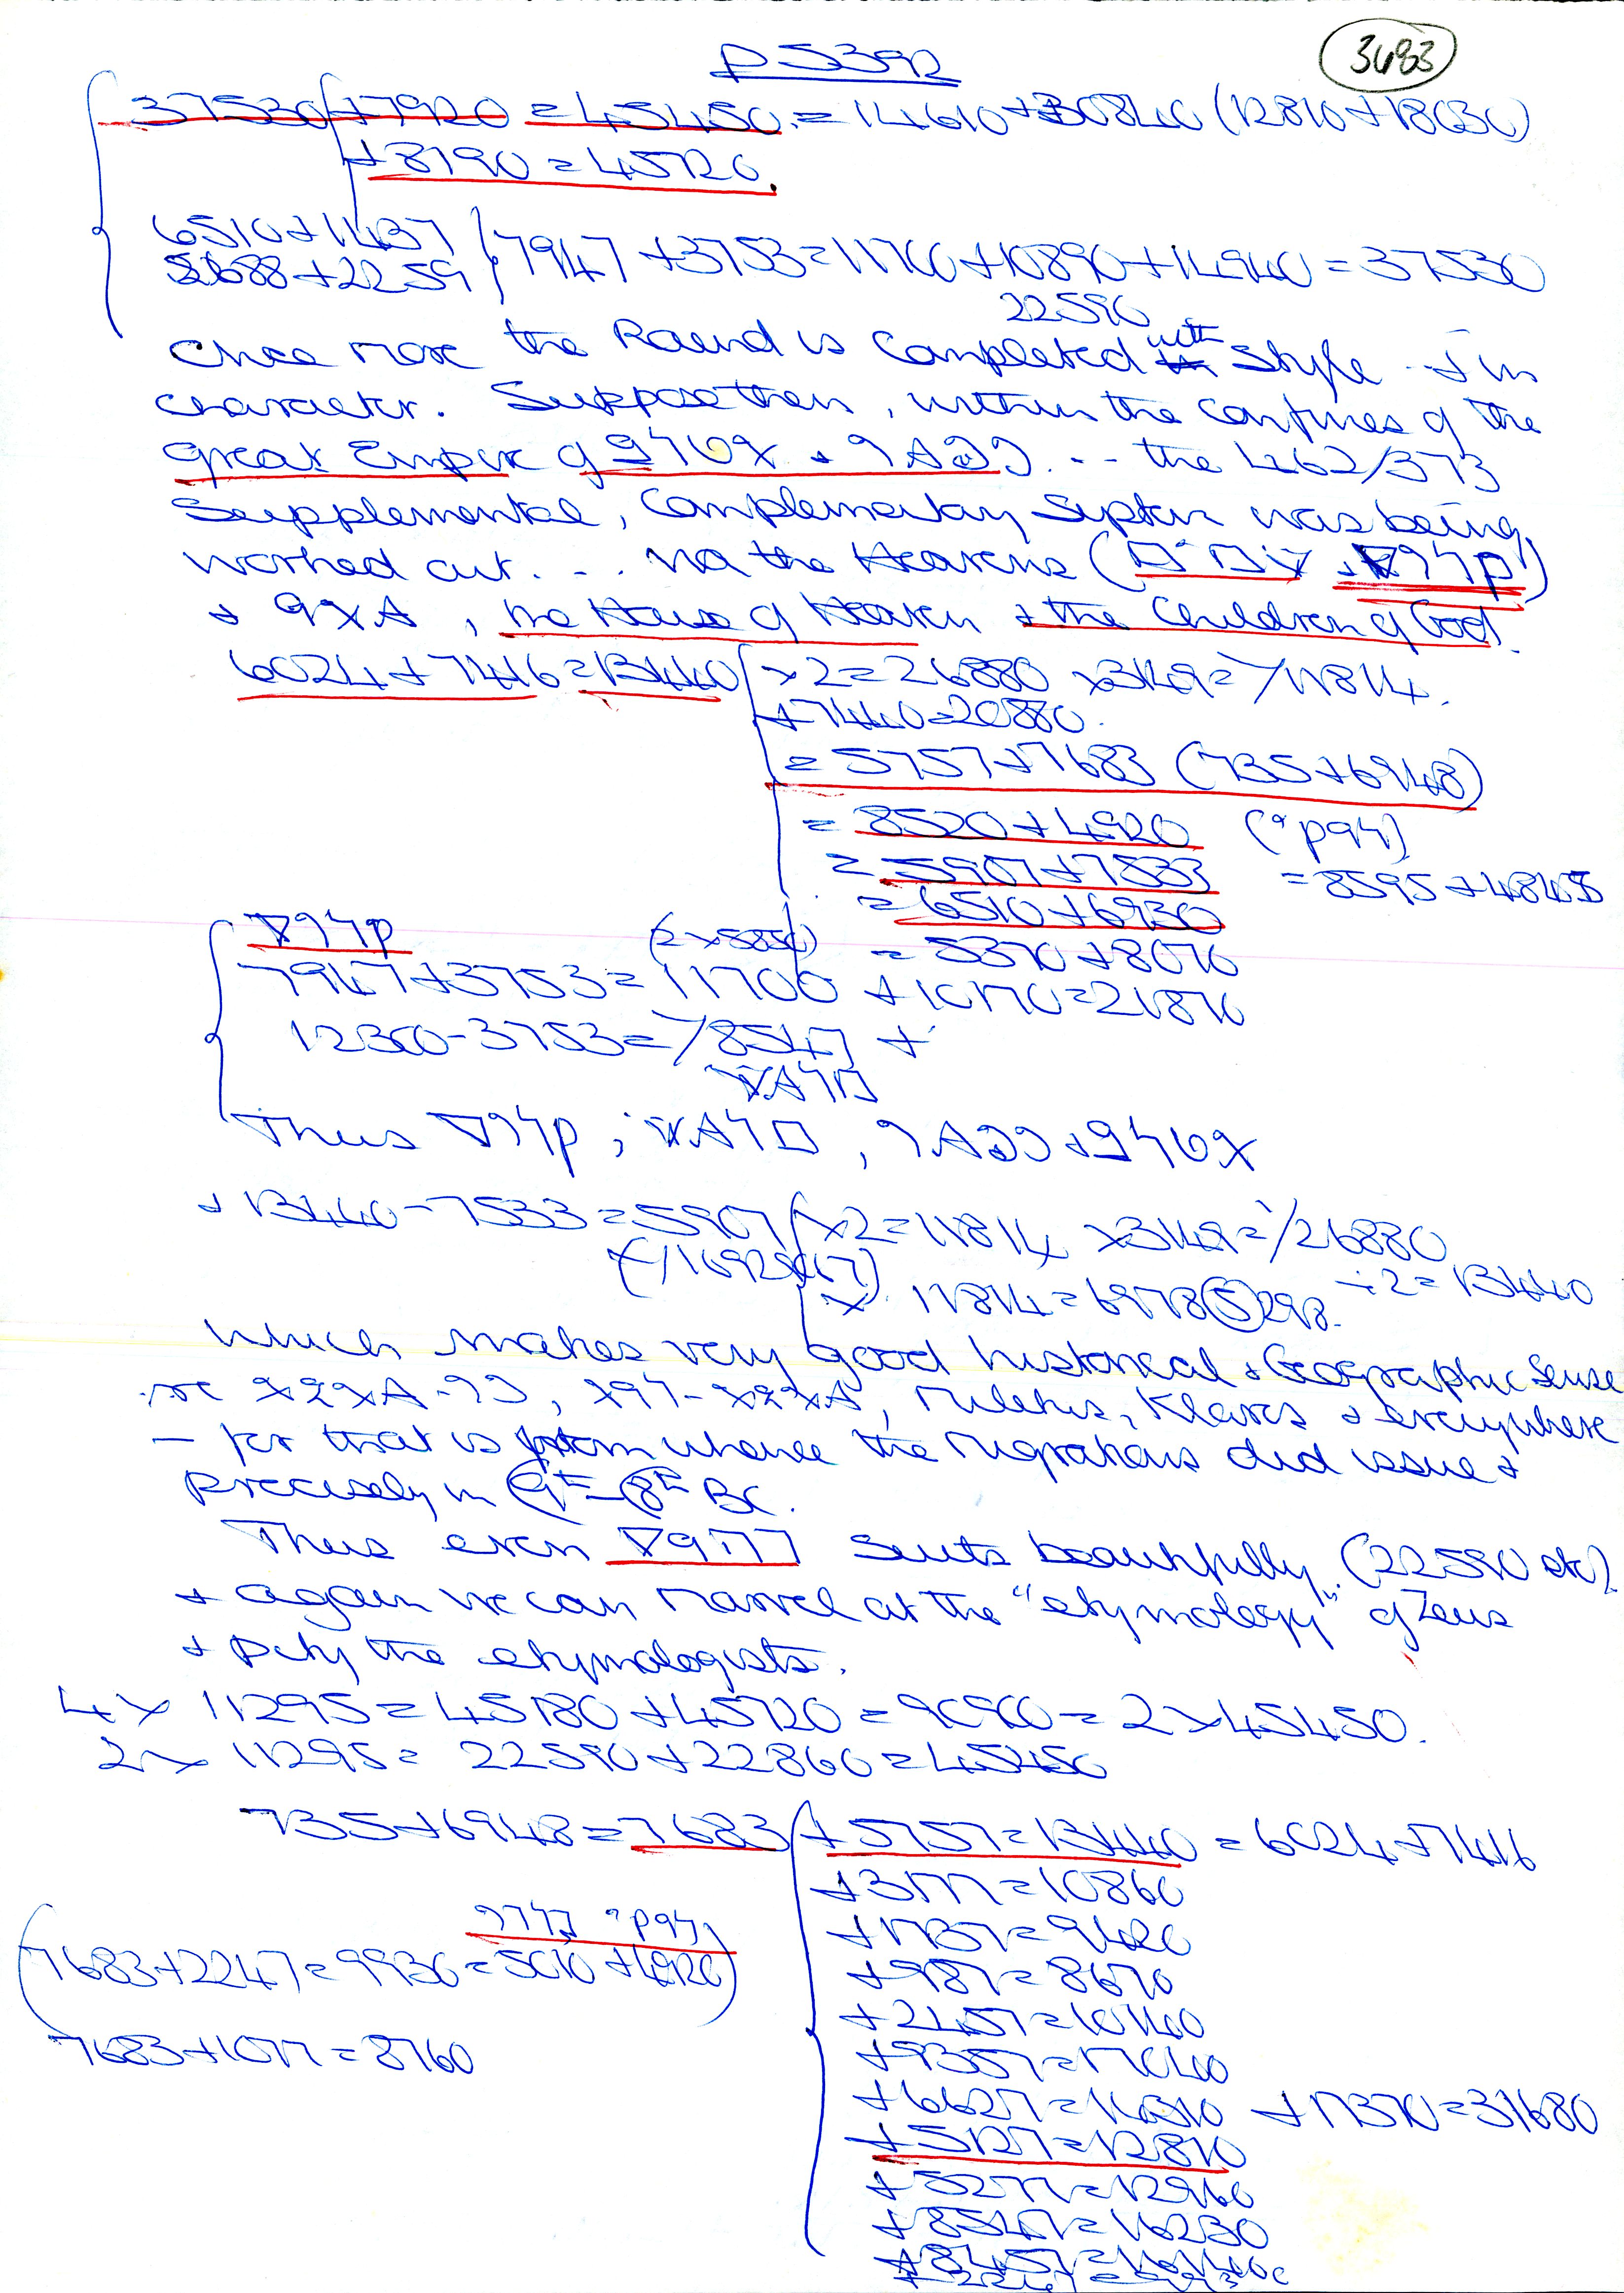 p5392
3483
37530 + 7920 = 45450 = 14610 + 30840 (12810 + 18030)
+ 8190 = 45720.
6510 + 1437
5688 + 2259
7947 + 3753 = 11700 + 10890 + 14940 = 37530
22590
Once more the Round is completed with style - & in
character. Suppose then, within the confines of the
great Empire of & ... the 462/373
Supplemental, Complementary System was being
worked out. ... via the Heavens (
& , the House of Heaven & the Children of God.
6024 + 7416 = 13440 × 2 = 26880 × 3149 = /11814.
+ 7440 = 20880.
= 5757 + 7683 (735 + 6948)
= 8520 + 4920
= 5907 + 7533 = 8595 + 4845
= 6510 + 6930
= 5370 + 8070
(2 × 5850)
7947 + 3753 = 11700 + 10170 = 21870
12300 - 3753 = /8547 +
Thus
+ 13440 - 7533 = 5907 × 2 = 11814 × 3149 = /26880
÷ 2 = 13440
× 11814 = 6978(5)298.
which makes very good historical & Geographic sense
Miletus, Klaros & everywhere
- for that is from whence the migrations did issue &
precisely in 9th - 8th BC.
Thus even suits beautifully. (22590 etc).
& again we can marvel at the "etymology" of Zeus
& pity the etymologists.
4 × 11295 = 45180 + 45720 = 90900 = 2 × 45450.
2 × 11295 = 22590 + 22860 = 45450
735 + 6948 = 7683 + 5757 = 13440 = 6024 + 7416
+ 3177 = 10860
+ 1737 = 9420
7683 + 2247 = 9930 = 5010 + 4920
+ 987 = 8670
+ 2457 = 10140
7683 + 1077 = 8760
+ 9357 = 17040
+ 6627 = 14310 + 17370 = 31680
+ 5127 = 12810
+ 5277 = 12960
+ 8547 = 16230
+ 8457 = 16140